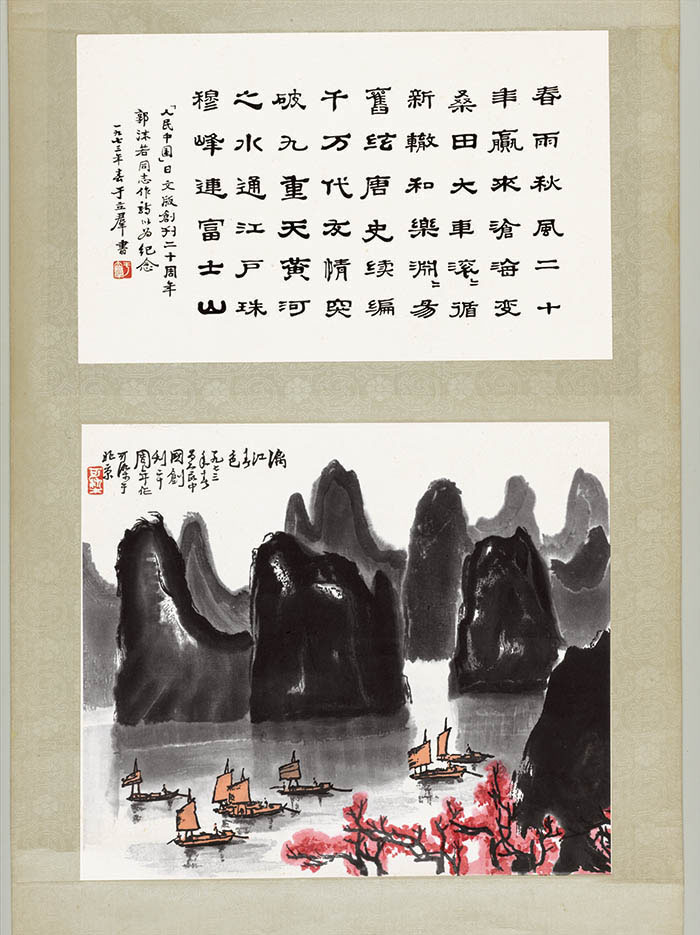 春雨秋風二十
年贏來滄海變
桑田大車滾〻循
新轍和樂淵〻易
舊絃唐史续编
千万代友情突
破九重天黄河
之水通江戶珠
穆峰連富士山
「人民中国」日文版創刊二十周年
郭沫若同志作詩以为纪念
一九七三年春于立羣書
漓江春色
一九七三
年春
為人民中
國創
刊二十
周年作
可染于
北京